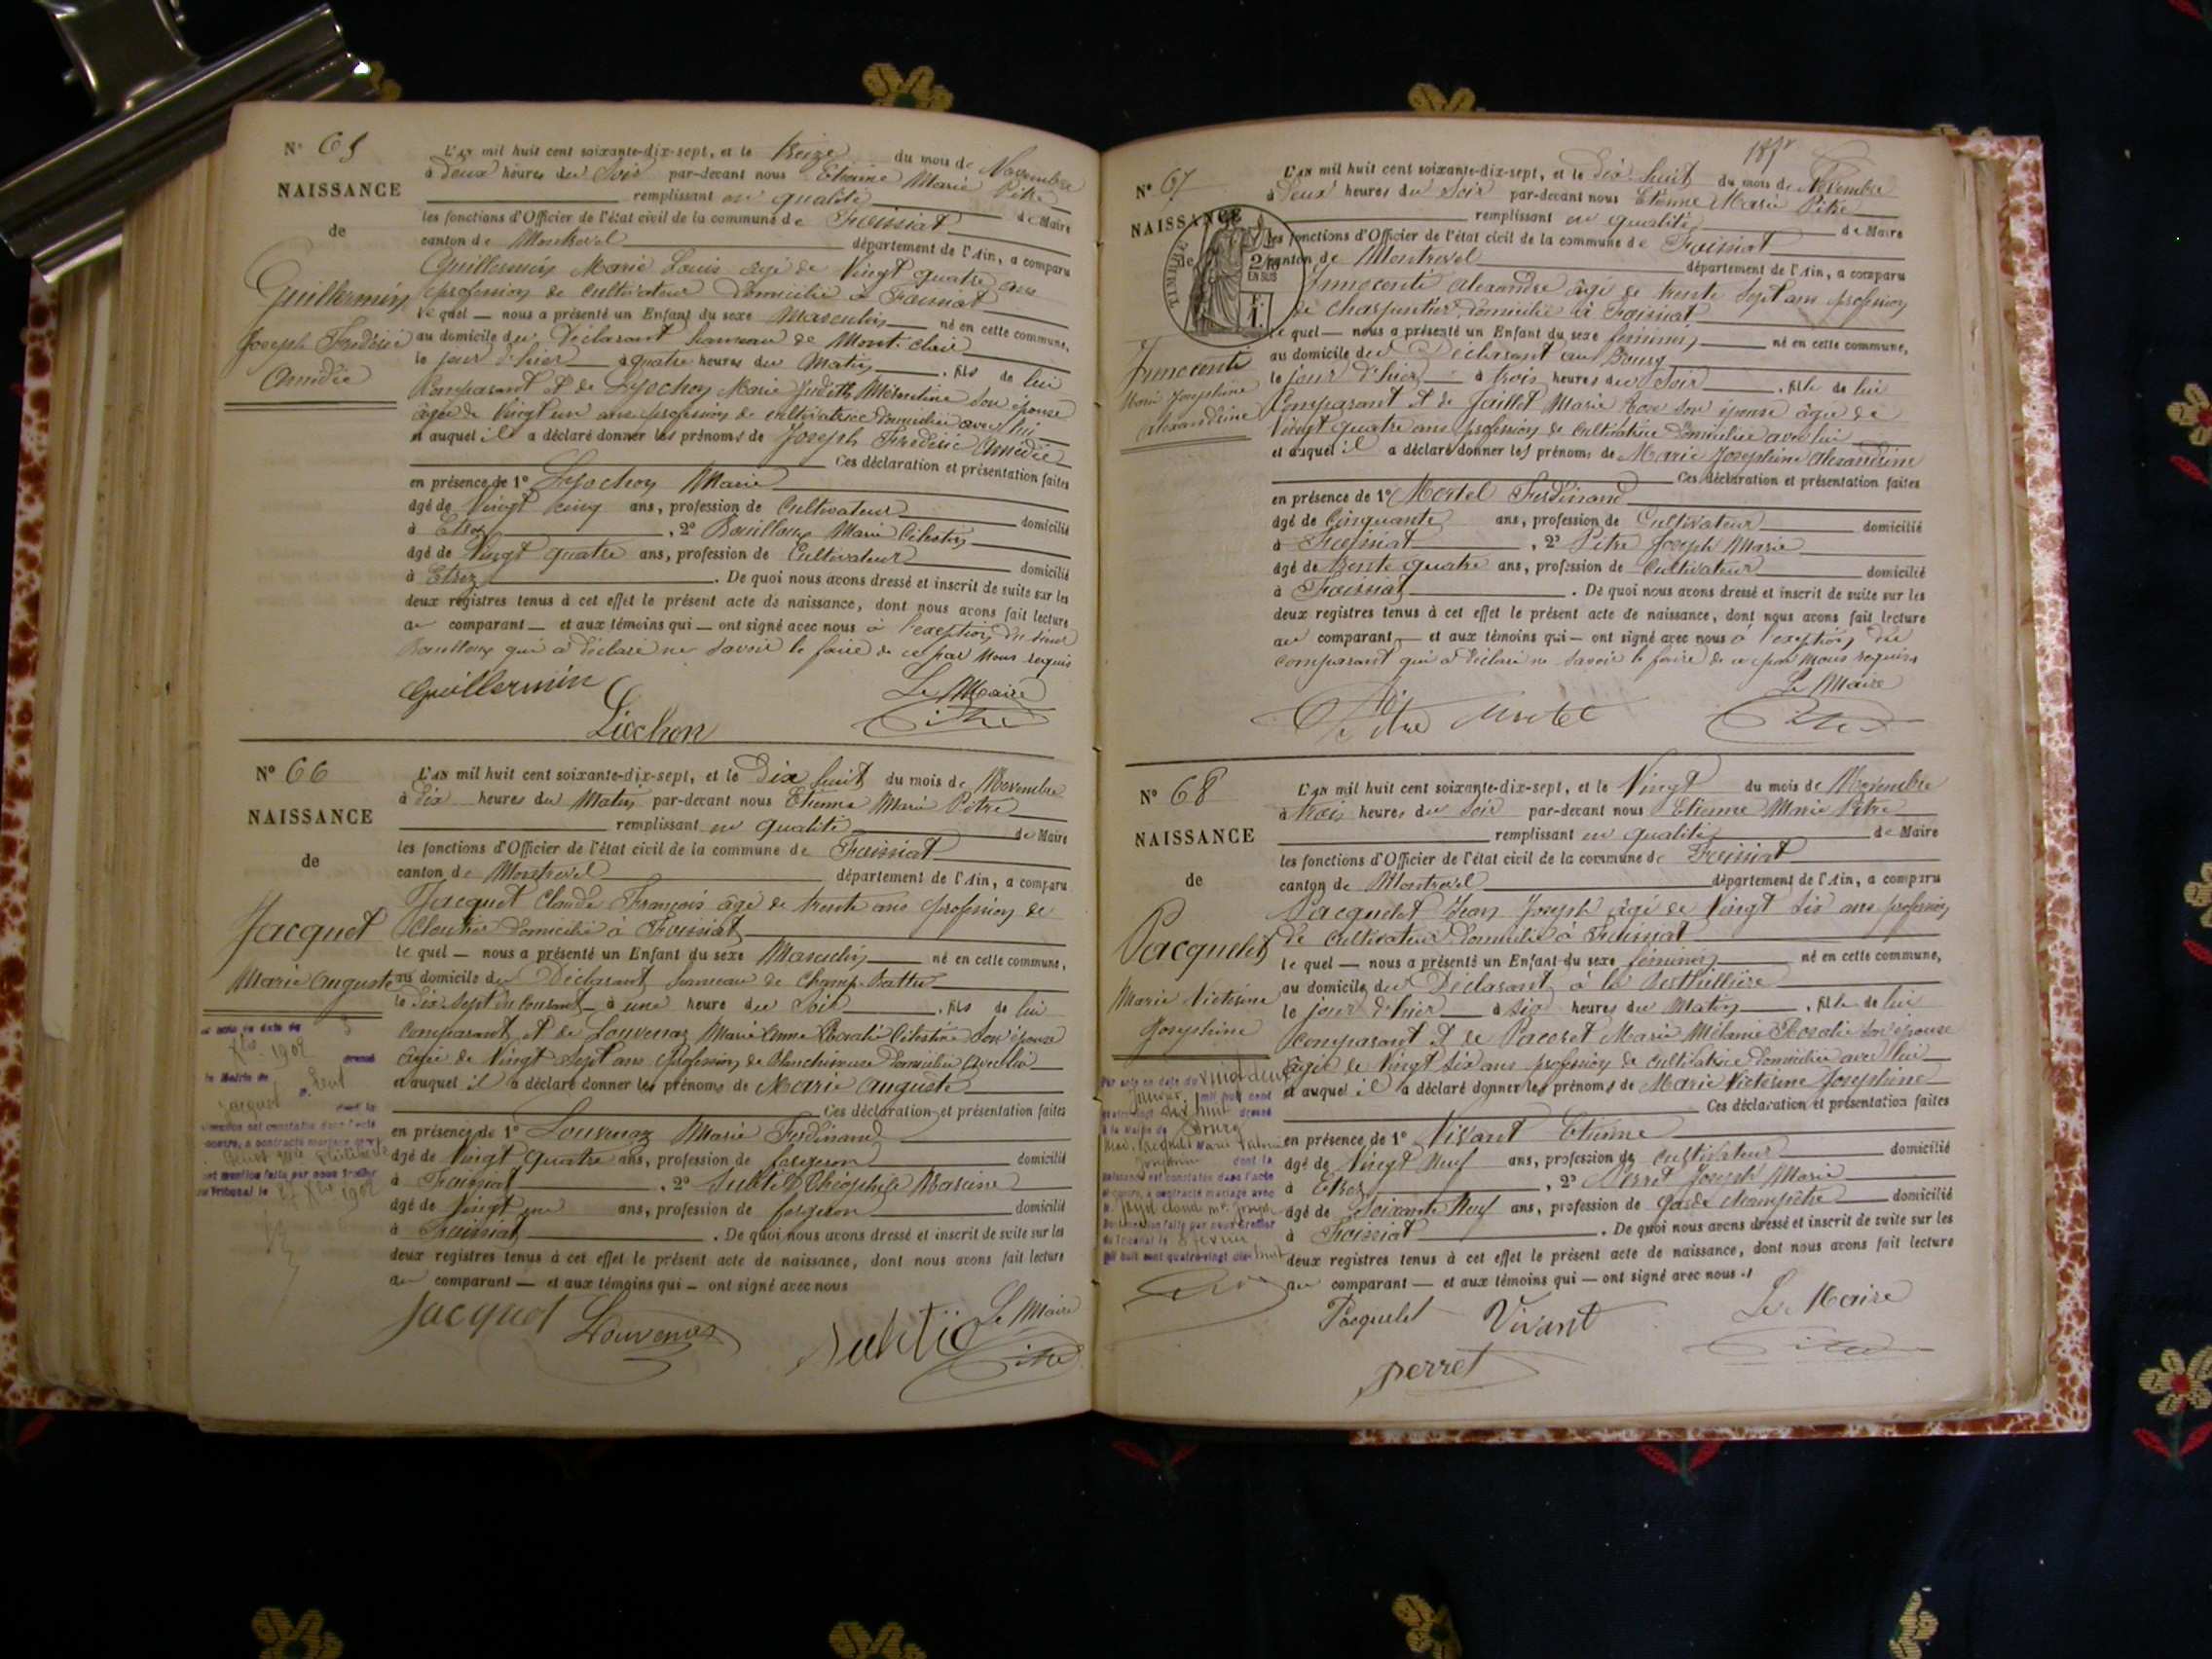 N° 65
NAISSANCE
de
Guillermin
Joseph Frédéric
Amédée
L'AN mil huit cent soixante-dix-sept, et le treize du mois de Novembre
à Deux heures du Soir par-devant nous Etienne Marie Pitre
remplissant en qualité de Maire
les fonctions d'Officier de l'état civil de la commune de Foissiat
canton de Montrevel département de l'Ain, a comparu
Guillermin Marie Louis âgé de Vingt quatre ans
profession de Cultivateur Domicilié à Foissiat
le quel — nous a présenté un Enfant du sexe Masculin né en cette commune,
au domicile du Déclarant hameau de Mont-clair
le jour d'hier à quatre heures du Matin, fils de lui
Comparant et de Lyochon Marie Judith son épouse
âgée de Vingt un ans profession de cultivatrice Domiciliée avec lui
et auquel il a déclaré donner les prénoms de Joseph Frédéric Amédée
Ces déclaration et présentation faites
en présence de 1° Lyochon Marie
âgé de Vingt cinq ans, profession de Cultivateur domicilié
à Etrez, 2° Bouilloux Marie Célestin
âgé de Vingt quatre ans, profession de Cultivateur domicilié
à Etrez. De quoi nous avons dressé et inscrit de suite sur les
deux registres tenus à cet effet le présent acte de naissance, dont nous avons fait lecture
au comparant — et aux témoins qui — ont signé avec nous à l'exception du sieur
Bouilloux qui a déclaré ne savoir le faire de ce par Nous requis
Guillermin
Liochon
Le Maire
Pitre
N° 66
NAISSANCE
de
Jacquet
Marie Auguste
1902
Jacquet
1902
L'AN mil huit cent soixante-dix-sept, et le Dix huit du mois de Novembre
à Dix heures du Matin par-devant nous Etienne Marie Pitre
remplissant en qualité de Maire
les fonctions d'Officier de l'état civil de la commune de Foissiat
canton de Montrevel département de l'Ain, a comparu
Jacquet Claude François âgé de trente ans profession de
Cloutier Domicilié à Foissiat
le quel — nous a présenté un Enfant du sexe Masculin né en cette commune,
au domicile du Déclarant hameau de Champ-Battu
le Dix sept du courant à une heure du Soir, fils de lui
comparant et de Louvenaz Marie Anne Rosalie Célestine Son épouse
âgée de Vingt sept ans profession de Blanchisseuse Domiciliée avec lui
et auquel il a déclaré donner les prénoms de Marie Auguste
Ces déclaration et présentation faites
en présence de 1° Louvenaz Marie Ferdinand
âgé de Vingt quatre ans, profession de forgeron domicilié
à Foissiat, 2° Subtil Théophile
âgé de Vingt un ans, profession de forgeron domicilié
à Foissiat. De quoi nous avons dressé et inscrit de suite sur les
deux registres tenus à cet effet le présent acte de naissance, dont nous avons fait lecture
au comparant — et aux témoins qui — ont signé avec nous
Jacquet
Louvenaz
Subtil
Le Maire
Pitre
N° 67
NAISSANCE
de
TIMBRE
2/10
EN SUS
Innocenti
Marie Joséphine
Alexandrine
L'AN mil huit cent soixante-dix-sept, et le Dix huit du mois de Novembre
à Deux heures du Soir par-devant nous Etienne Marie Pitre
remplissant en qualité de Maire
les fonctions d'Officier de l'état civil de la commune de Foissiat
canton de Montrevel département de l'Ain, a comparu
Innocenti Alexandre âgé de trente sept ans profession
de charpentier Domicilié à Foissiat
le quel — nous a présenté un Enfant du sexe féminin né en cette commune,
au domicile du Déclarant au Bourg
le jour d'hier à trois heures du Soir, fille de lui
Comparant et de Jaillet Marie Rose son épouse âgée de
Vingt quatre ans profession de Cultivatrice Domiciliée avec lui
et auquel il a déclaré donner les prénoms de Marie Joséphine Alexandrine
Ces déclaration et présentation faites
en présence de 1° Mortel Ferdinand
âgé de Cinquante ans, profession de Cultivateur domicilié
à Foissiat, 2° Pitre Joseph Marie
âgé de trente quatre ans, profession de Cultivateur domicilié
à Foissiat. De quoi nous avons dressé et inscrit de suite sur les
deux registres tenus à cet effet le présent acte de naissance, dont nous avons fait lecture
au comparant — et aux témoins qui — ont signé avec nous à l'exception du
comparant qui a déclaré ne savoir le faire de ce par Nous requis
Pitre Mortel
Le Maire
Pitre
N° 68
NAISSANCE
de
Pacquelet
Marie Victorine
Joséphine
Par acte en date du vingt deux
Janvier mil huit cent
quatre vingt dix huit dressé
à la Mairie de Bourg
dont la
naissance est constatée dans l'acte
ci-contre, a contracté mariage avec
mil huit cent quatre-vingt dix huit
L'AN mil huit cent soixante-dix-sept, et le Vingt du mois de Novembre
à trois heures du Soir par-devant nous Etienne Marie Pitre
remplissant en qualité de Maire
les fonctions d'Officier de l'état civil de la commune de Foissiat
canton de Montrevel département de l'Ain, a comparu
Pacquelet Jean Joseph âgé de Vingt six ans profession
de cultivateur Domicilié à Foissiat
le quel — nous a présenté un Enfant du sexe féminin né en cette commune,
au domicile du Déclarant à la Berthillière
le jour d'hier à six heures du Matin, fille de lui
comparant et de Pacoret Marie Mélanie Rosalie son épouse
âgée de Vingt six ans profession de cultivatrice domiciliée avec lui
et auquel il a déclaré donner les prénoms de Marie Victorine Joséphine
Ces déclaration et présentation faites
en présence de 1° Vivant Etienne
âgé de Vingt Neuf ans, profession de cultivateur domicilié
à Etrez, 2° Perret Joseph Marie
âgé de Soixante Neuf ans, profession de Garde champêtre domicilié
à Foissiat. De quoi nous avons dressé et inscrit de suite sur les
deux registres tenus à cet effet le présent acte de naissance, dont nous avons fait lecture
au comparant — et aux témoins qui — ont signé avec nous
Pacquelet
Vivant
Le Maire
perret
Pitre